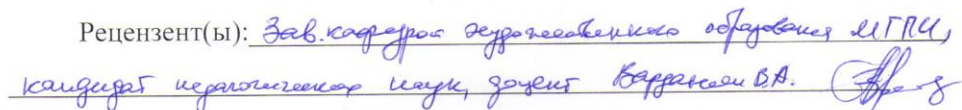 Рецензент(ы): Зав. кафедрой художественного образования МГПИ,
кандидат педагогических наук, доцент Варданян В.А.